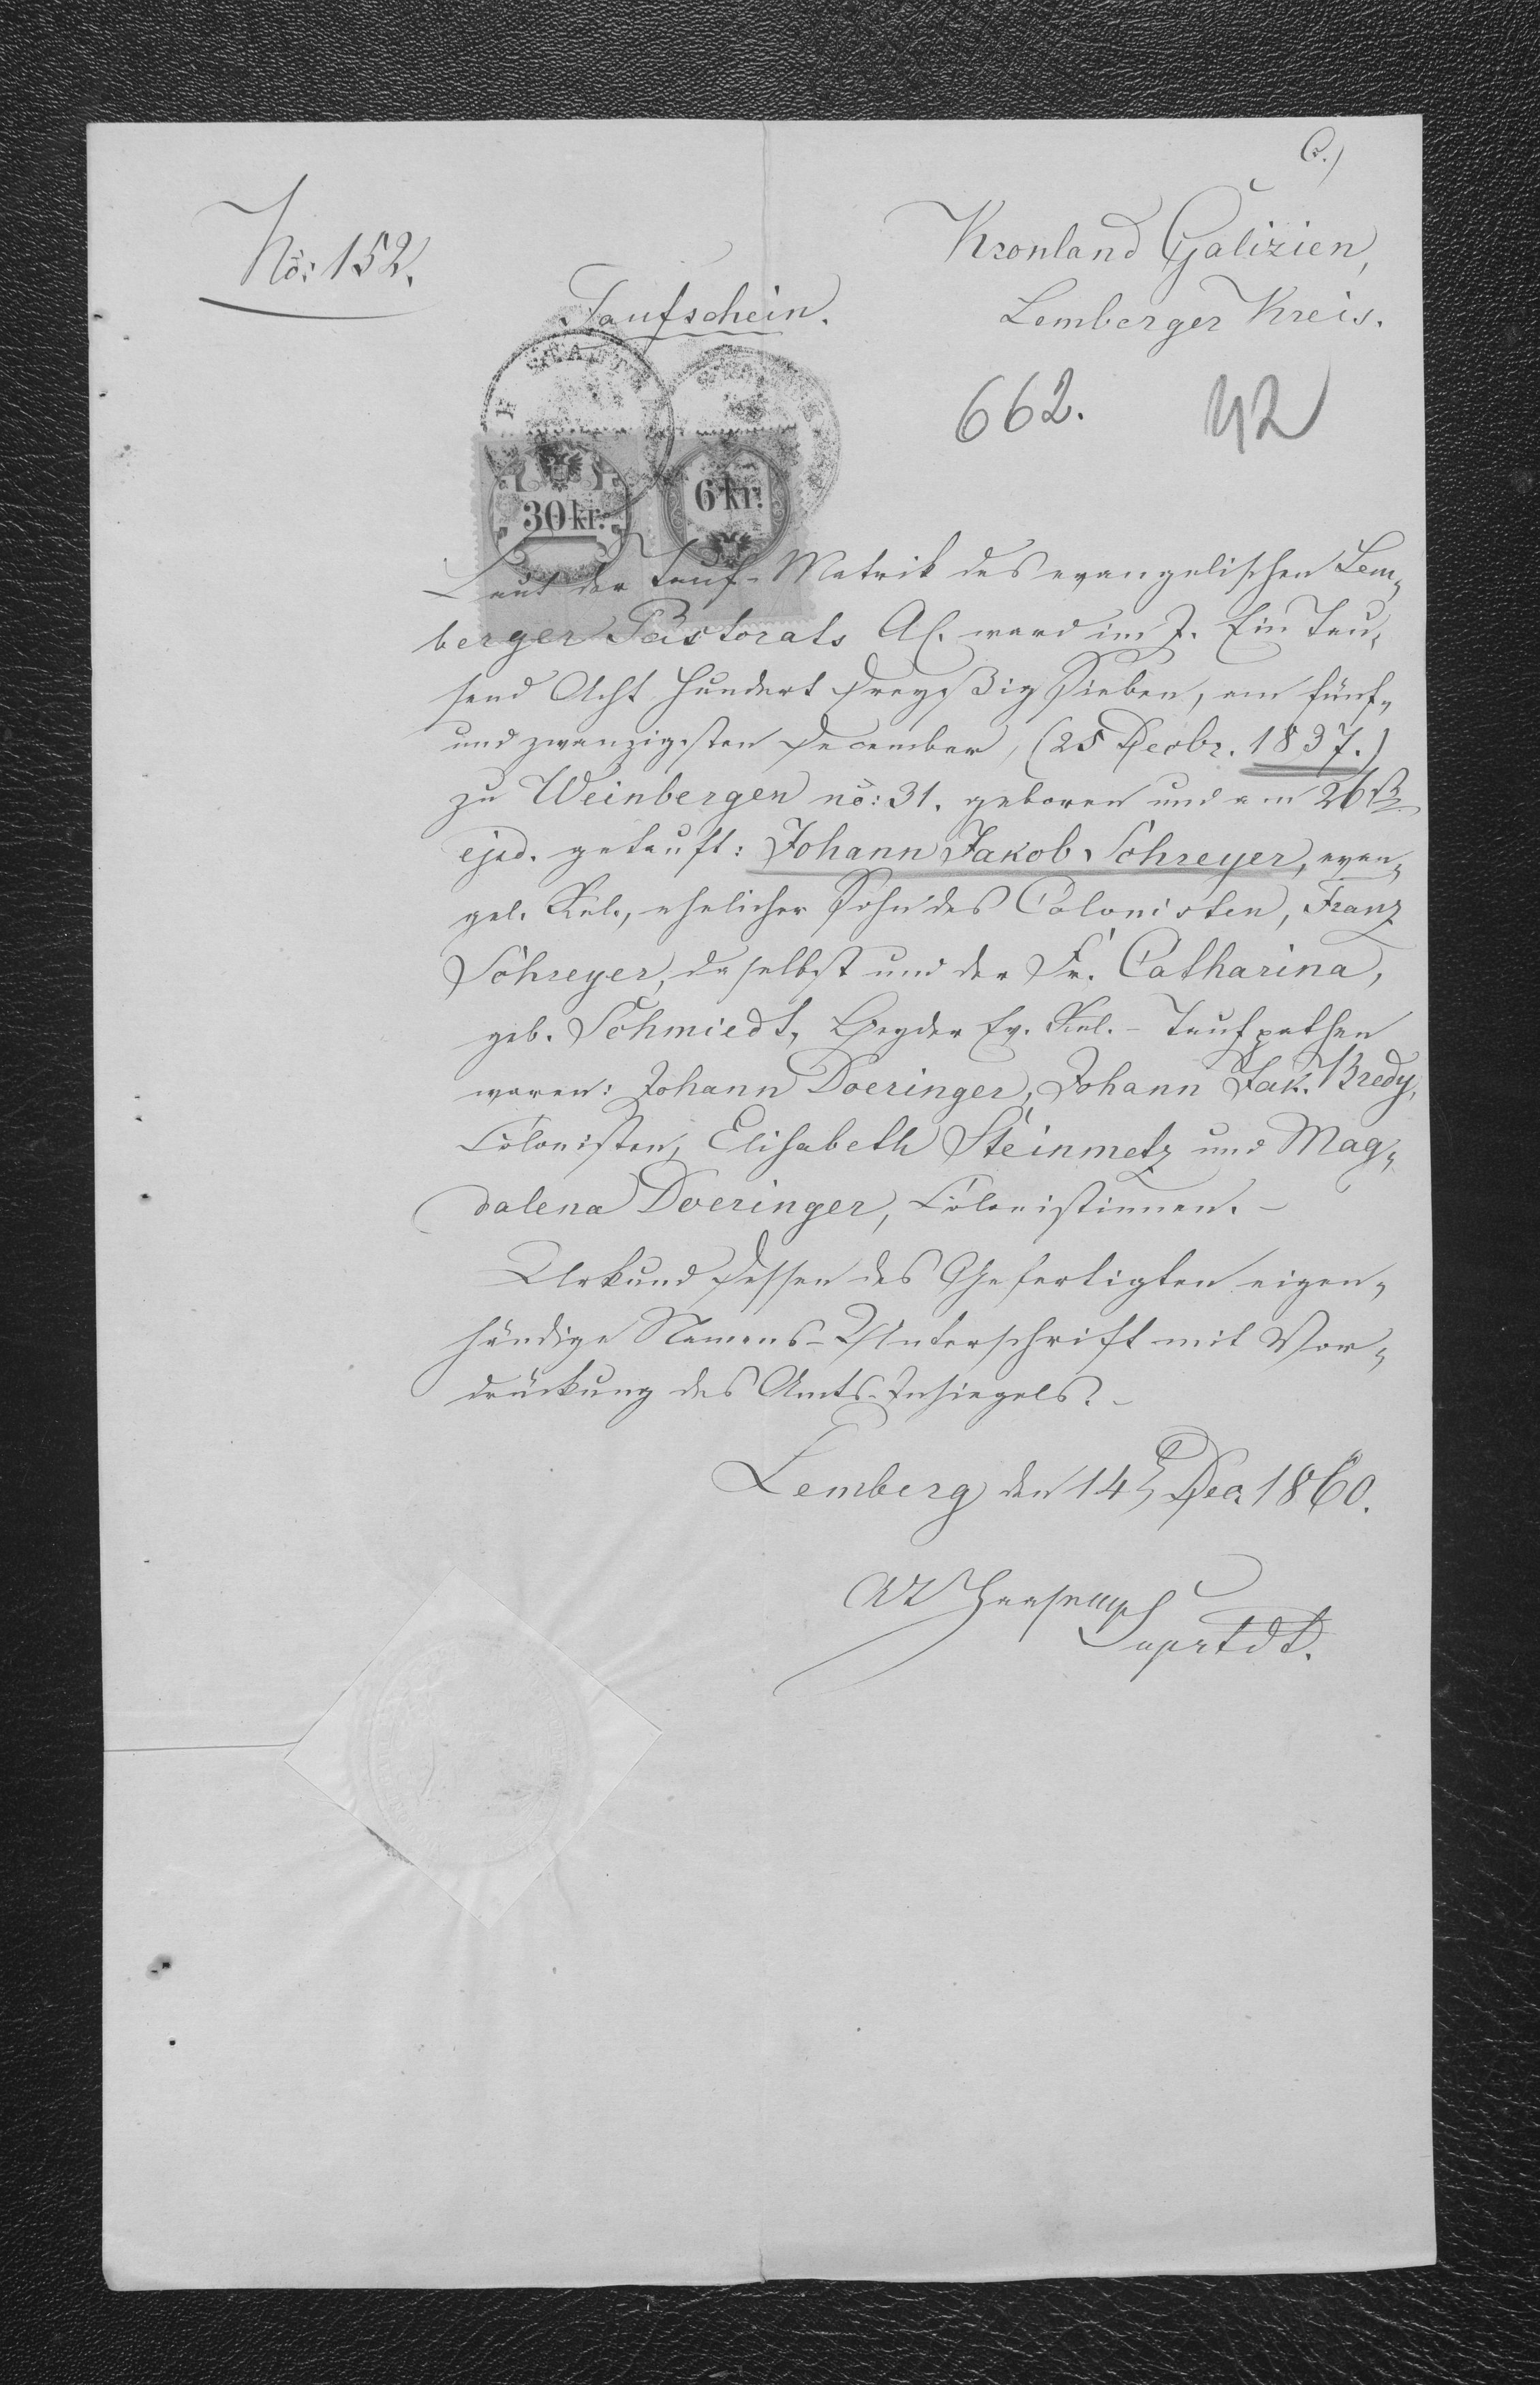 C.)
No: 152.
Kronland Galizien,
Taufschein.
Lemberger Kreis.
662.
42
30 kr.
6 kr.
Laut der Tauf-Matrik des evangelischen Lem-
berger Pastorats AC. ward im J. Ein Tau-
send Acht Hundert Dreyßig Sieben, am fünf-
und zwanzigsten December, (25 Decbr. 1837.)
zu Weinbergen no: 31. geboren und am 26ten
ejsd. getauft: Johann Jakob Schreyer, evan-
gel. Rel., ehelicher Sohn des Colonisten, Franz
Schreyer, daselbst und der Fr. Catharina,
geb. Schmiedt, Beyder Ev. Rel. - Taufpathen
waren: Johann Doeringer, Johann Jak. Bredy,
Colonisten, Elisabeth Steinmetz und Mag-
dalena Doeringer, Colonistinnen. -
Urkund dessen des Gefertigten eigen-
händige Namens-Unterschrift mit Vor-
drückung des Amts-Insiegels. -
Lemberg den 14 Dec 1860.
Suprtdt.